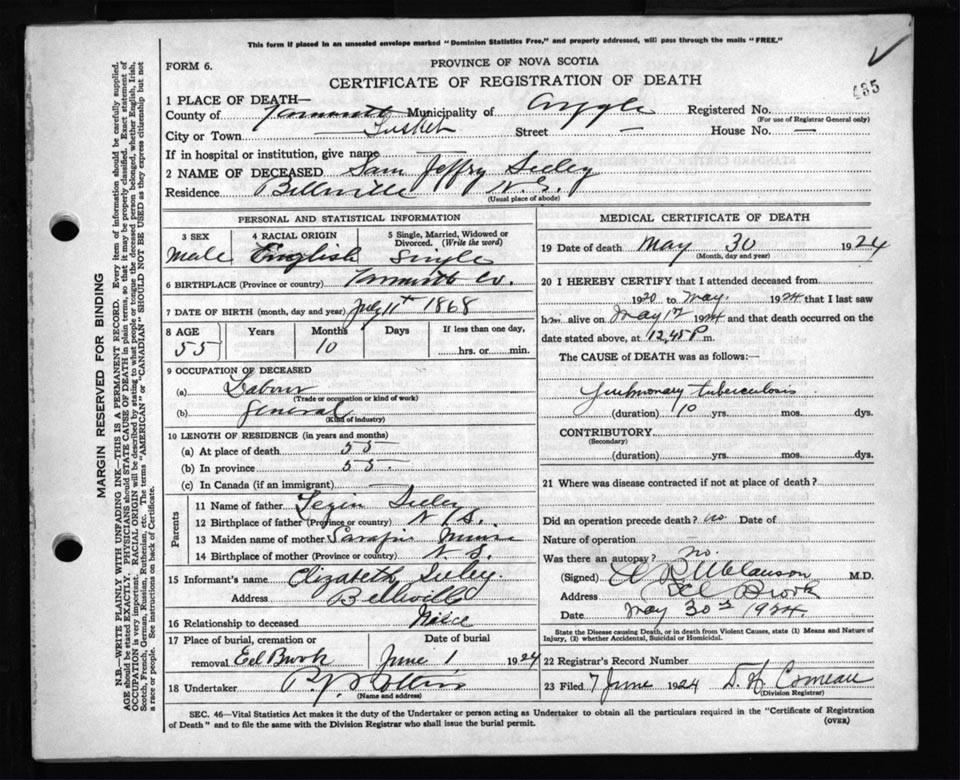 This form if placed in an unsealed envelope marked "Dominion Statistics Free," and properly addressed, will pass through the mails "FREE."
FORM 6.
PROVINCE OF NOVA SCOTIA
CERTIFICATE OF REGISTRATION OF DEATH
435
1 PLACE OF DEATH—
County of Yarmouth Municipality of Argyle Registered No.
(For use of Registrar General only)
City or Town Tusket Street — House No. —
If in hospital or institution, give name —
2 NAME OF DECEASED Sam Jeffry Seeley
Residence Belleville N.S.
(Usual place of abode)
PERSONAL AND STATISTICAL INFORMATION
3 SEX 4 RACIAL ORIGIN 5 Single, Married, Widowed or Divorced. (Write the word)
Male English Single
6 BIRTHPLACE (Province or country) Yarmouth Co.
7 DATE OF BIRTH (month, day and year) 1868
8 AGE Years Months Days If less than one day,
55 10 hrs. or min.
9 OCCUPATION OF DECEASED
(a) Labour
(Trade or occupation or kind of work)
(b) General
(Kind of industry)
10 LENGTH OF RESIDENCE (in years and months)
(a) At place of death 55
(b) In province 55.
(c) In Canada (if an immigrant) —
Parents
11 Name of father Seeley
12 Birthplace of father (Province or country) N.S.
13 Maiden name of mother
14 Birthplace of mother (Province or country) N.S.
15 Informant's name Elizabeth Seeley.
Address Belleville
16 Relationship to deceased Niece
17 Place of burial, cremation or Date of burial
removal Eel Brook June 1, 1924
18 Undertaker
(Name and address)
MEDICAL CERTIFICATE OF DEATH
19 Date of death May 30 1924
(Month, day and year)
20 I HEREBY CERTIFY that I attended deceased from
1920 to May. 1924 that I last saw
him alive on May 17 1924 and that death occurred on the
date stated above, at 12.45 P m.
The CAUSE of DEATH was as follows:—
Pulmonary tuberculosis
(duration) 10 yrs. mos. dys.
CONTRIBUTORY
(Secondary)
(duration) yrs. mos. dys.
21 Where was disease contracted if not at place of death?
Did an operation precede death? no Date of
Nature of operation
Was there an autopsy? no.
(Signed) M.D.
Address Eel Brook
Date May 30th 1924.
State the Disease causing Death, or in death from Violent Causes, state (1) Means and Nature of
Injury, (2) whether Accidental, Suicidal or Homicidal.
22 Registrar's Record Number
23 Filed 7 June 1924 Comeau
(Division Registrar)
SEC. 46—Vital Statistics Act makes it the duty of the Undertaker or person acting as Undertaker to obtain all the particulars required in the "Certificate of Registration
of Death" and to file the same with the Division Registrar who shall issue the burial permit.
(OVER)
MARGIN RESERVED FOR BINDING
N.B.—WRITE PLAINLY WITH UNFADING INK—THIS IS A PERMANENT RECORD. Every item of information should be carefully supplied.
AGE should be stated EXACTLY. PHYSICIANS should STATE CAUSE OF DEATH in plain terms, so that it may be properly classified. Exact statement of
OCCUPATION is very important. RACIAL ORIGIN will be described by stating to what people or tongue the deceased person belonged, whether English, Irish,
Scotch, French, German, Russian, Ruthenian, etc. The terms "AMERICAN" or "CANADIAN" SHOULD NOT BE USED as they express citizenship but not
a race or people. See instructions on back of Certificate.